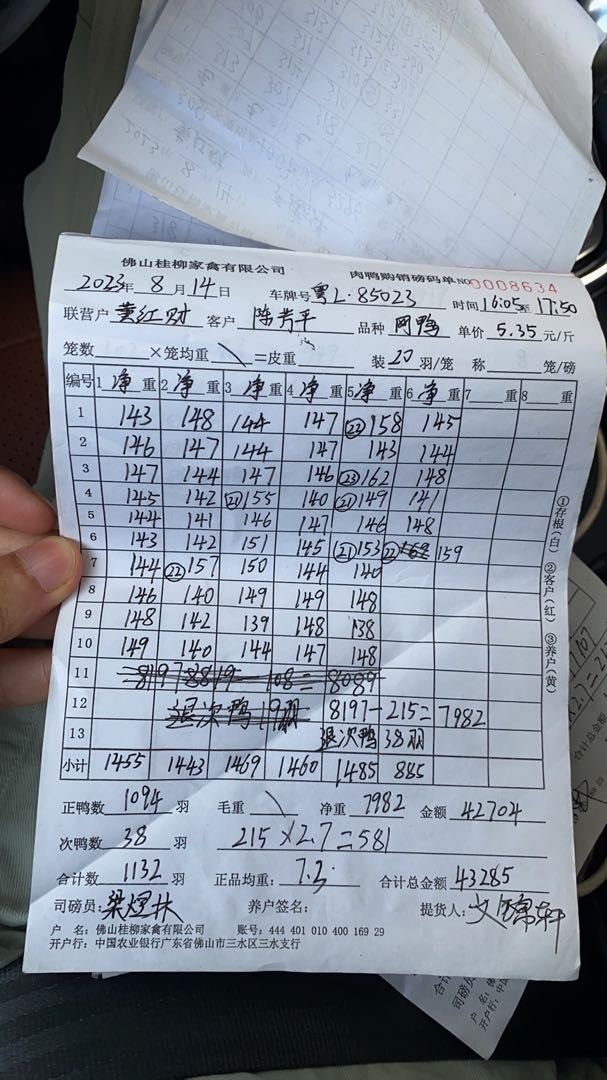 佛山桂柳家禽有限公司 肉鸭购销磅码单 NO 0008634
2023年 8月14日 车牌号 粤L·85023 时间 16:05至17:50
联营户 黄红财 客户 陈芳平 品种 网鸭 单价 5.35 元/斤
笼数 ×笼均重 \ =皮重 装 20 羽/笼 称 笼/磅
编号 1 净重 2 净重 3 净重 4 净重 5 净重 6 净重 7 重 8 重
1 143 148 144 147 ㉒158 145
2 146 147 144 147 143 144
3 147 144 147 146 ㉓162 148
4 145 142 ㉑155 140 ㉑149 141
5 144 141 146 147 146 148
6 143 142 151 145 ㉑153 ㉒ 159
7 144 ㉒157 150 144 140
8 146 140 149 149 148
9 148 142 139 148 138
10 149 140 144 147 148
11 8197 8819-108=8089
12 退次鸭19羽 8197-215=7982
13 退次鸭38羽
小计 1455 1443 1469 1460 1485 885
正鸭数 1094 羽 毛重 \ 净重 7982 金额 42704
次鸭数 38 羽 215×2.7=581
合计数 1132 羽 正品均重: 7.3 合计总金额 43285
司磅员: 梁煜林 养户签名: 提货人:
户 名: 佛山桂柳家禽有限公司 账号: 444 401 010 400 169 29
开户行: 中国农业银行广东省佛山市三水区三水支行
①存根(白) ②客户(红) ③养户(黄)
合计总金额
司磅员
户 名: 佛
开户行: 中